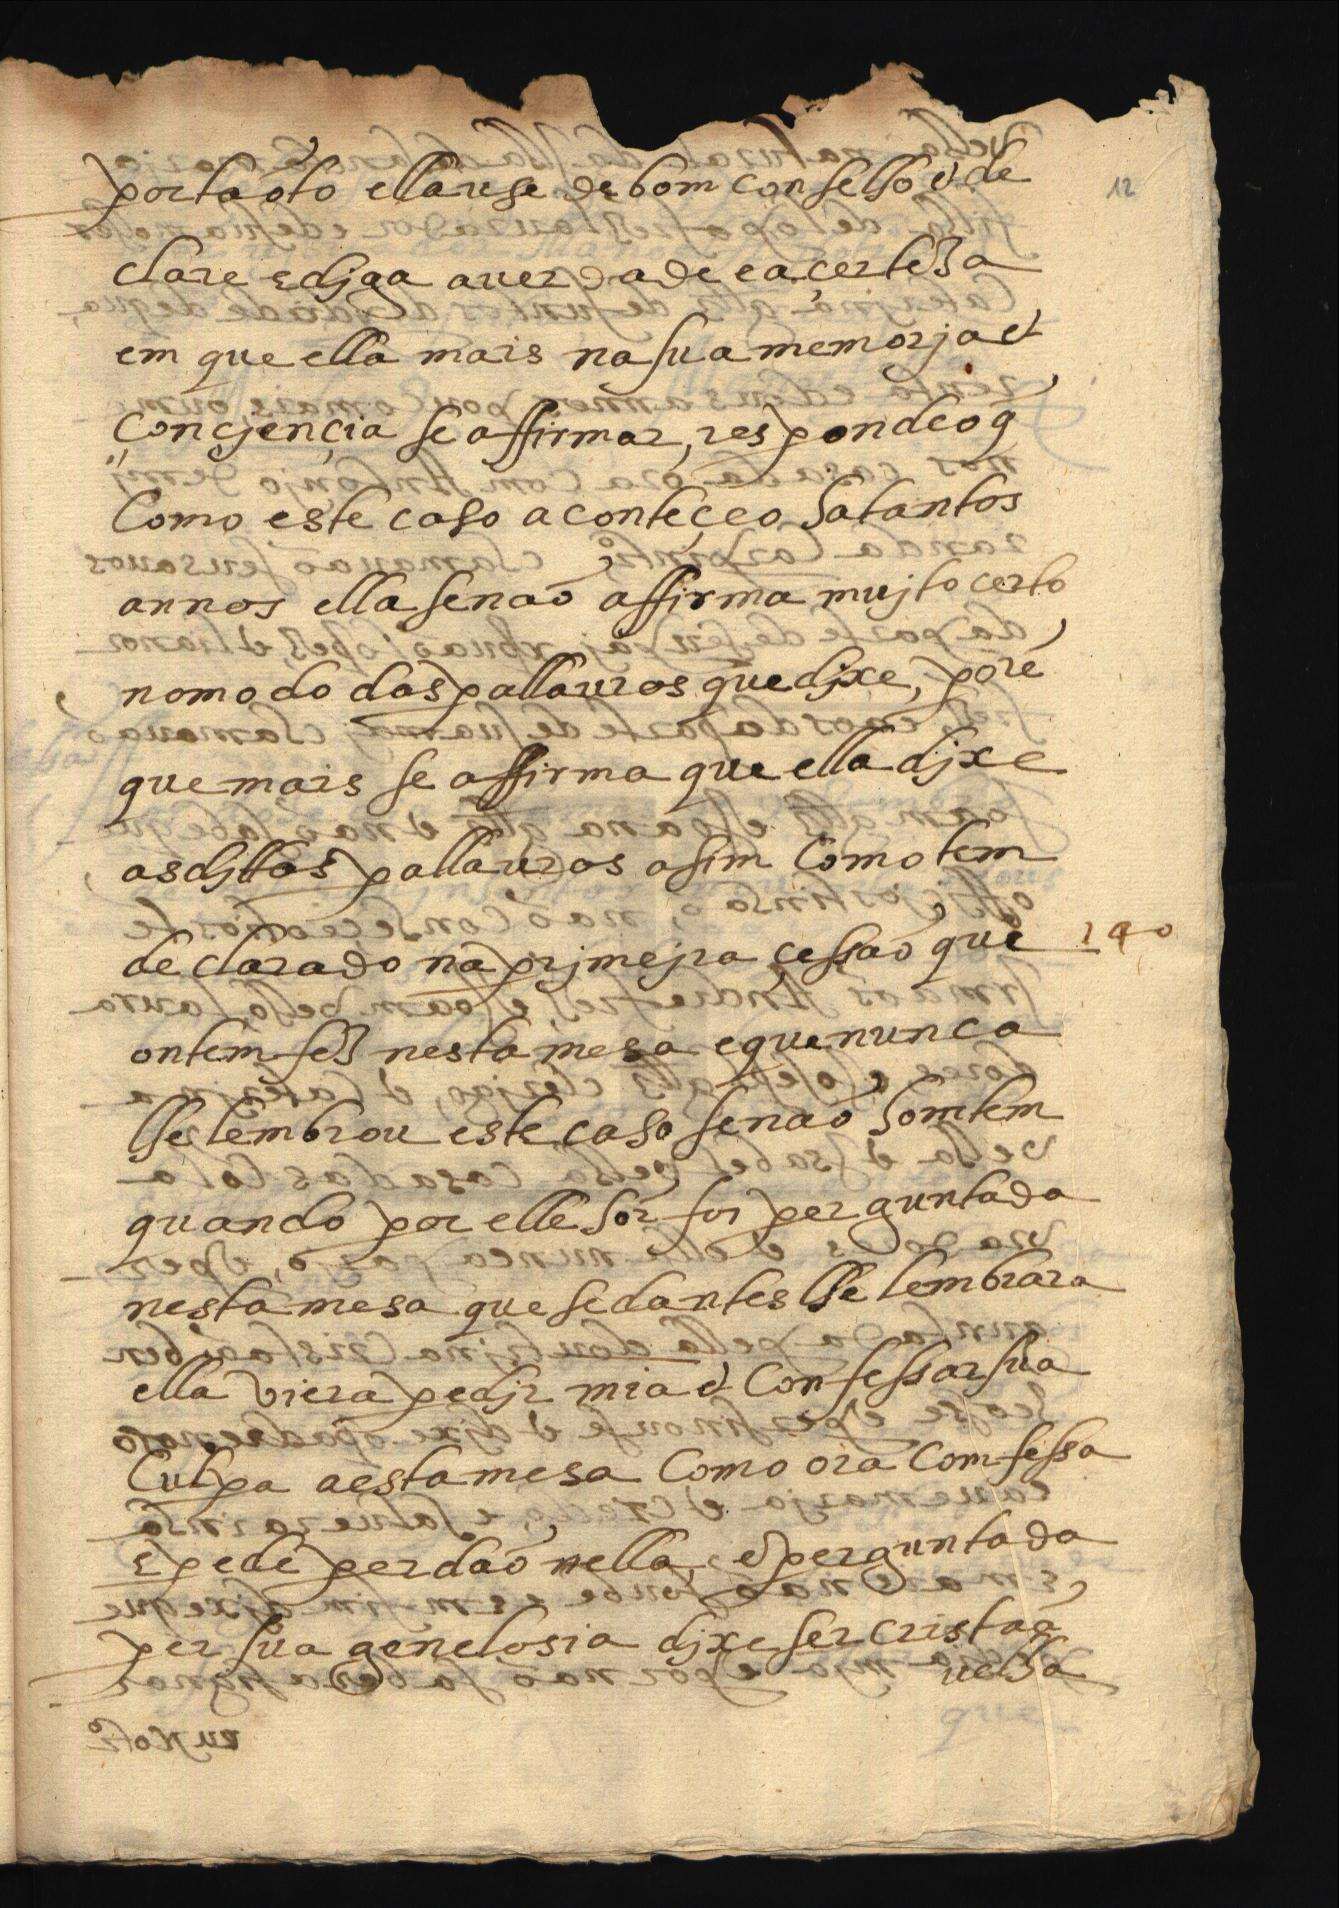 12
portãoto ella use de bom conselho e de
clare e diga a verdade e a certeza
em que ella mais na sua memorja et
conçiençia se affirmar, respondeo q̃
Como este caso aconteçeo ha tantos
annos ella se não affirma mujto certo
no modo das pallauras que dixe, porẽ
que mais se affirma que ella dixe
as dittas pallauras asim Como tem
declarado na primejra çessão que 140
ontem fez nesta mesa e que nunca
lhe lembrou este caso senão homtem
quando por elle sõr foi perguntada
nesta mesa que se dantes lhe lembrara
ella viera pedir mia et Confessar sua
Culpa a esta mesa Como ora Comfessa
E pede perdão nella, e perguntada
per sua genelosia dixe ser cristaã
velha